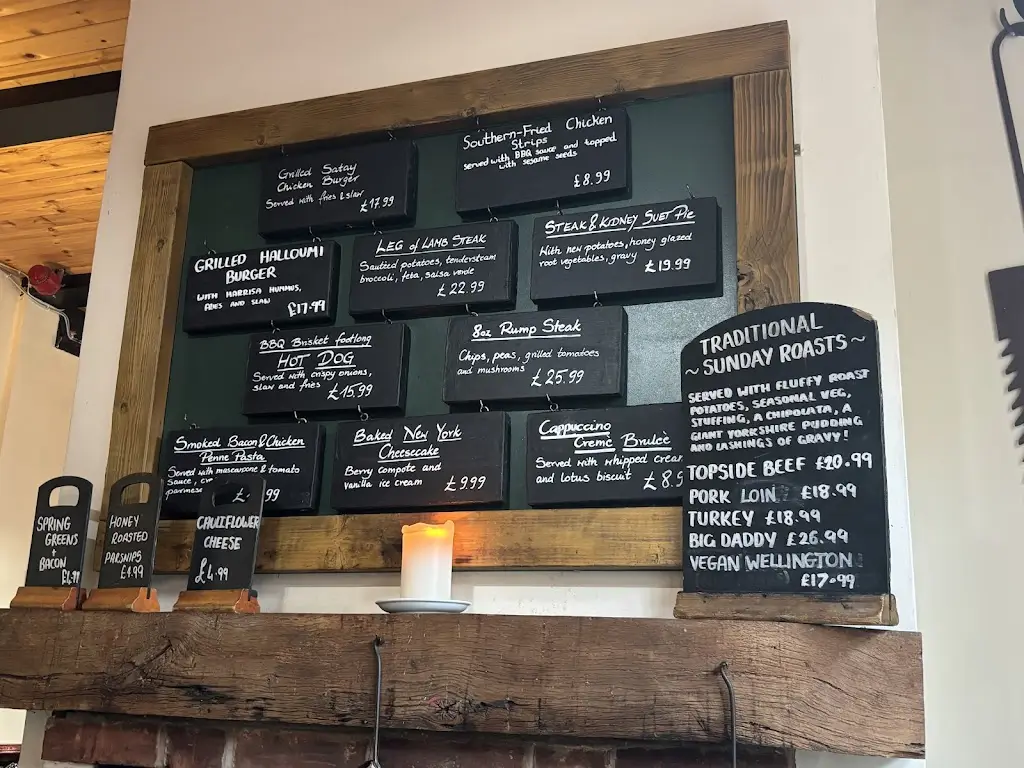 Grilled Satay
Chicken Burger
Served with fries & slaw
£17.99
Southern-Fried Chicken
Strips
served with BBQ sauce and topped
with sesame seeds
£8.99
GRILLED HALLOUMI
BURGER
WITH HARRISA HUMMUS,
FRIES AND SLAW
£17.99
LEG of LAMB STEAK
Sautted potatoes, tenderstem
broccoli, feta, salsa verde
£22.99
STEAK & KIDNEY SUET PIE
With new potatoes, honey glazed
root vegetables, gravy
£19.99
BBQ Brisket footlong
HOT DOG
Served with crispy onions,
slaw and fries
£15.99
8oz Rump Steak
Chips, peas, grilled tomatoes
and mushrooms
£25.99
Smoked Bacon & Chicken
Penne Pasta
Served with mascarpone & tomato
Sauce,
Baked New York
Cheesecake
Berry compote and
vanilla ice cream
£9.99
Cappuccino
Cremè Brulèè
Served with whipped
and lotus biscuit
SPRING
GREENS
+
BACON
£4.99
HONEY
ROASTED
PARSNIPS
£4.99
CAULIFLOWER
CHEESE
£4.99
TRADITIONAL
~ SUNDAY ROASTS ~
SERVED WITH FLUFFY ROAST
POTATOES, SEASONAL VEG,
STUFFING, A CHIPOLATA, A
GIANT YORKSHIRE PUDDING
AND LASHINGS OF GRAVY!
TOPSIDE BEEF £20.99
PORK LOIN £18.99
TURKEY £18.99
BIG DADDY £26.99
VEGAN WELLINGTON
£17.99